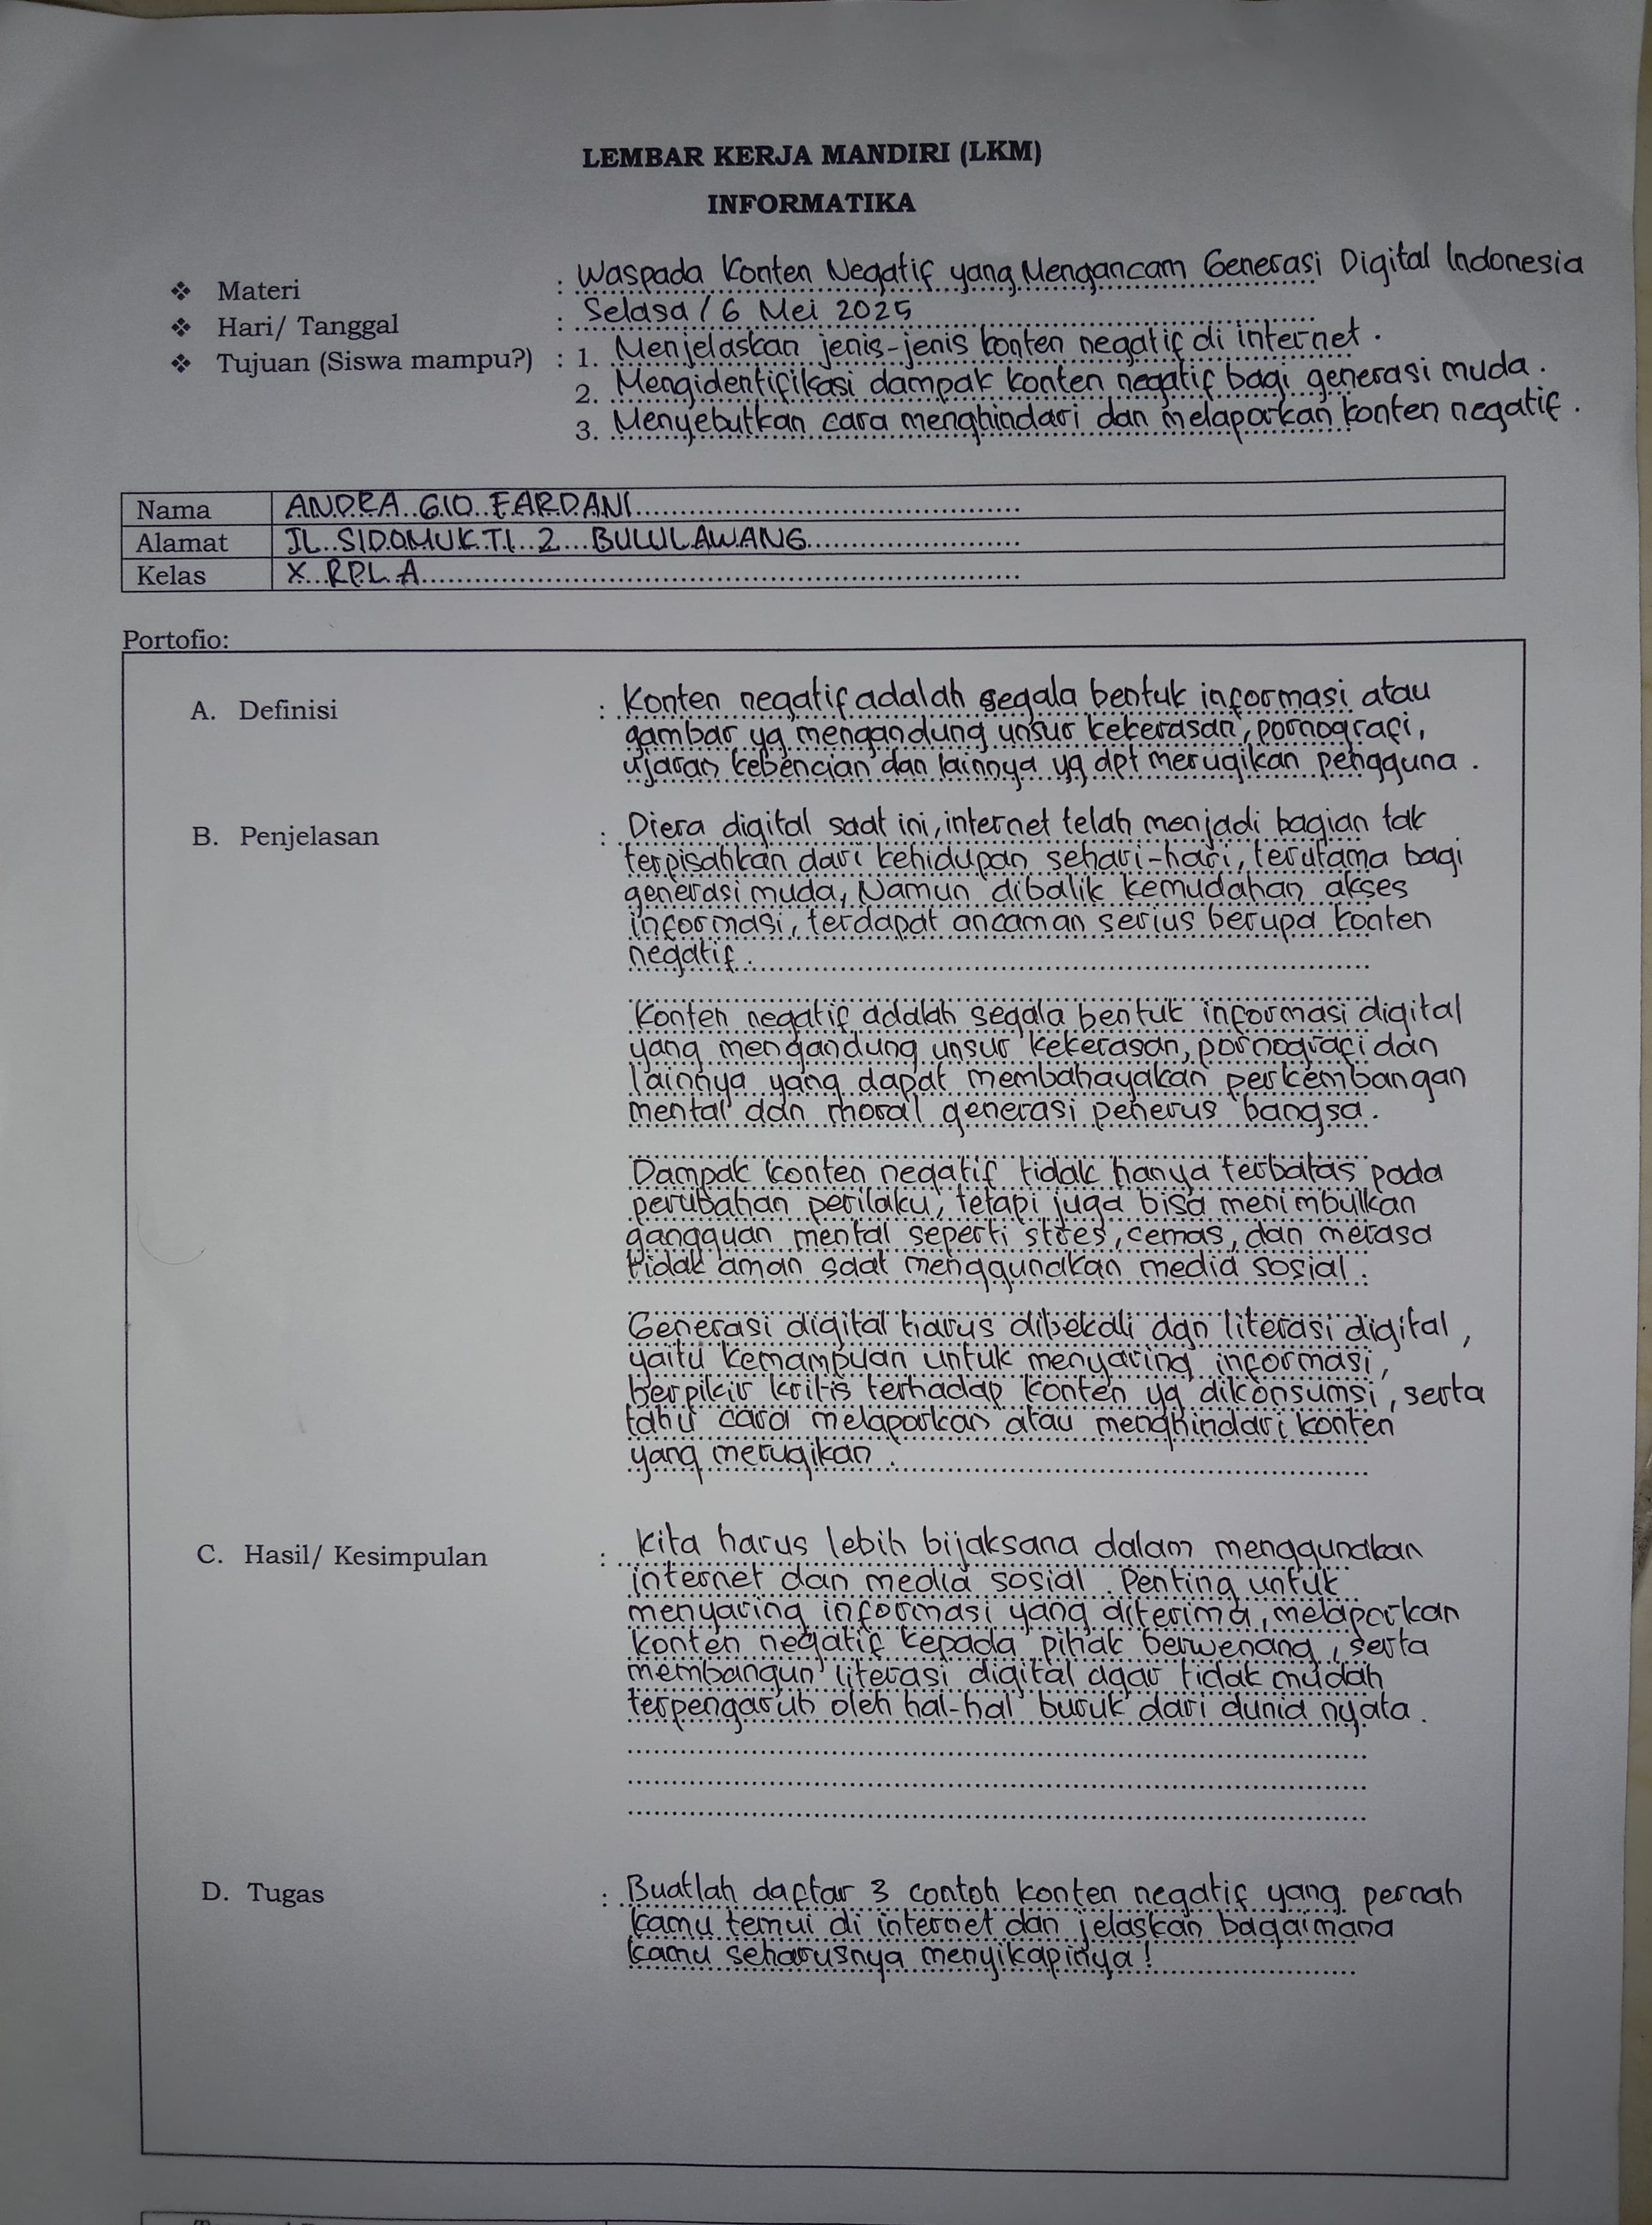 LEMBAR KERJA MANDIRI (LKM)
INFORMATIKA
❖ Materi : Waspada Konten Negatif yang Mengancam Generasi Digital Indonesia
❖ Hari/ Tanggal : Selasa / 6 Mei 2025
❖ Tujuan (Siswa mampu?) : 1. Menjelaskan jenis-jenis konten negatif di internet.
2. Mengidentifikasi dampak konten negatif bagi generasi muda.
3. Menyebutkan cara menghindari dan melaporkan konten negatif.
Nama ANDRA GIO FARDANI
Alamat JL SIDOMUKTI 2 BULULAWANG
Kelas X RPL A
Portofio:
A. Definisi : Konten negatif adalah segala bentuk informasi atau
gambar yg mengandung unsur kekerasan, pornografi,
ujaran kebencian dan lainnya yg dpt merugikan pengguna.
B. Penjelasan : Diera digital saat ini, internet telah menjadi bagian tak
terpisahkan dari kehidupan sehari-hari, terutama bagi
generasi muda, Namun dibalik kemudahan akses
informasi, terdapat ancaman serius berupa konten
negatif.
Konten negatif adalah segala bentuk informasi digital
yang mengandung unsur kekerasan, pornografi dan
lainnya yang dapat membahayakan perkembangan
mental dan moral generasi penerus bangsa.
Dampak konten negatif tidak hanya terbatas pada
perubahan perilaku, tetapi juga bisa menimbulkan
gangguan mental seperti stres, cemas, dan merasa
tidak aman saat menggunakan media sosial.
Generasi digital harus dibekali dgn literasi digital,
yaitu kemampuan untuk menyaring informasi,
berpikir kritis terhadap konten yg dikonsumsi, serta
tahu cara melaporkan atau menghindari konten
yang merugikan.
C. Hasil/ Kesimpulan : Kita harus lebih bijaksana dalam menggunakan
internet dan media sosial. Penting untuk
menyaring informasi yang diterima, melaporkan
konten negatif kepada pihak berwenang, serta
membangun literasi digital agar tidak mudah
terpengaruh oleh hal-hal buruk dari dunia nyata.
D. Tugas : Buatlah daftar 3 contoh konten negatif yang pernah
kamu temui di internet dan jelaskan bagaimana
kamu seharusnya menyikapinya!